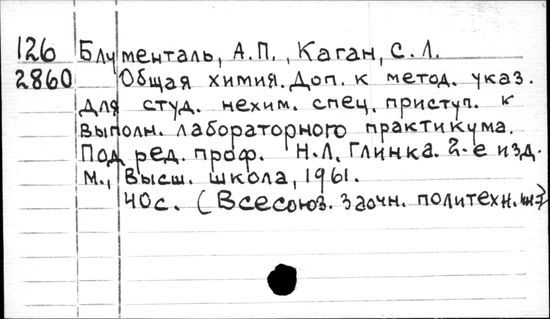 126 Блументаль, А.П., Каган, С.Л.
2860 Общая химия. Доп. к метод. указ.
для студ. нехим. спец. приступ. к
выполн. лабораторного практикума.
Под ред. проф. Н.Л. Глинка. 2-е изд.
М., Высш. школа, 1961.
40с. (Всесоюз. заочн. политехн. ин-т)